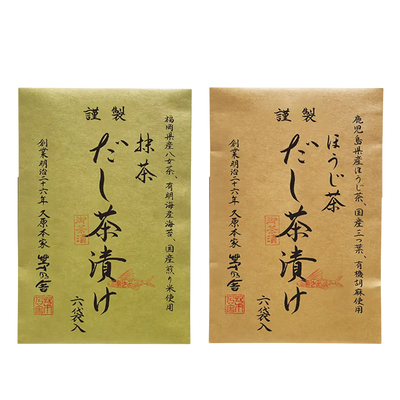 謹製
福岡県産八女茶、有明海産海苔、国産煎り米使用
抹茶
だし茶漬け
六袋入
創業明治二十六年 久原本家
茅乃舎
謹製
鹿児島県産ほうじ茶、国産三つ葉、有機胡麻使用
ほうじ茶
だし茶漬け
六袋入
創業明治二十六年 久原本家
茅乃舎